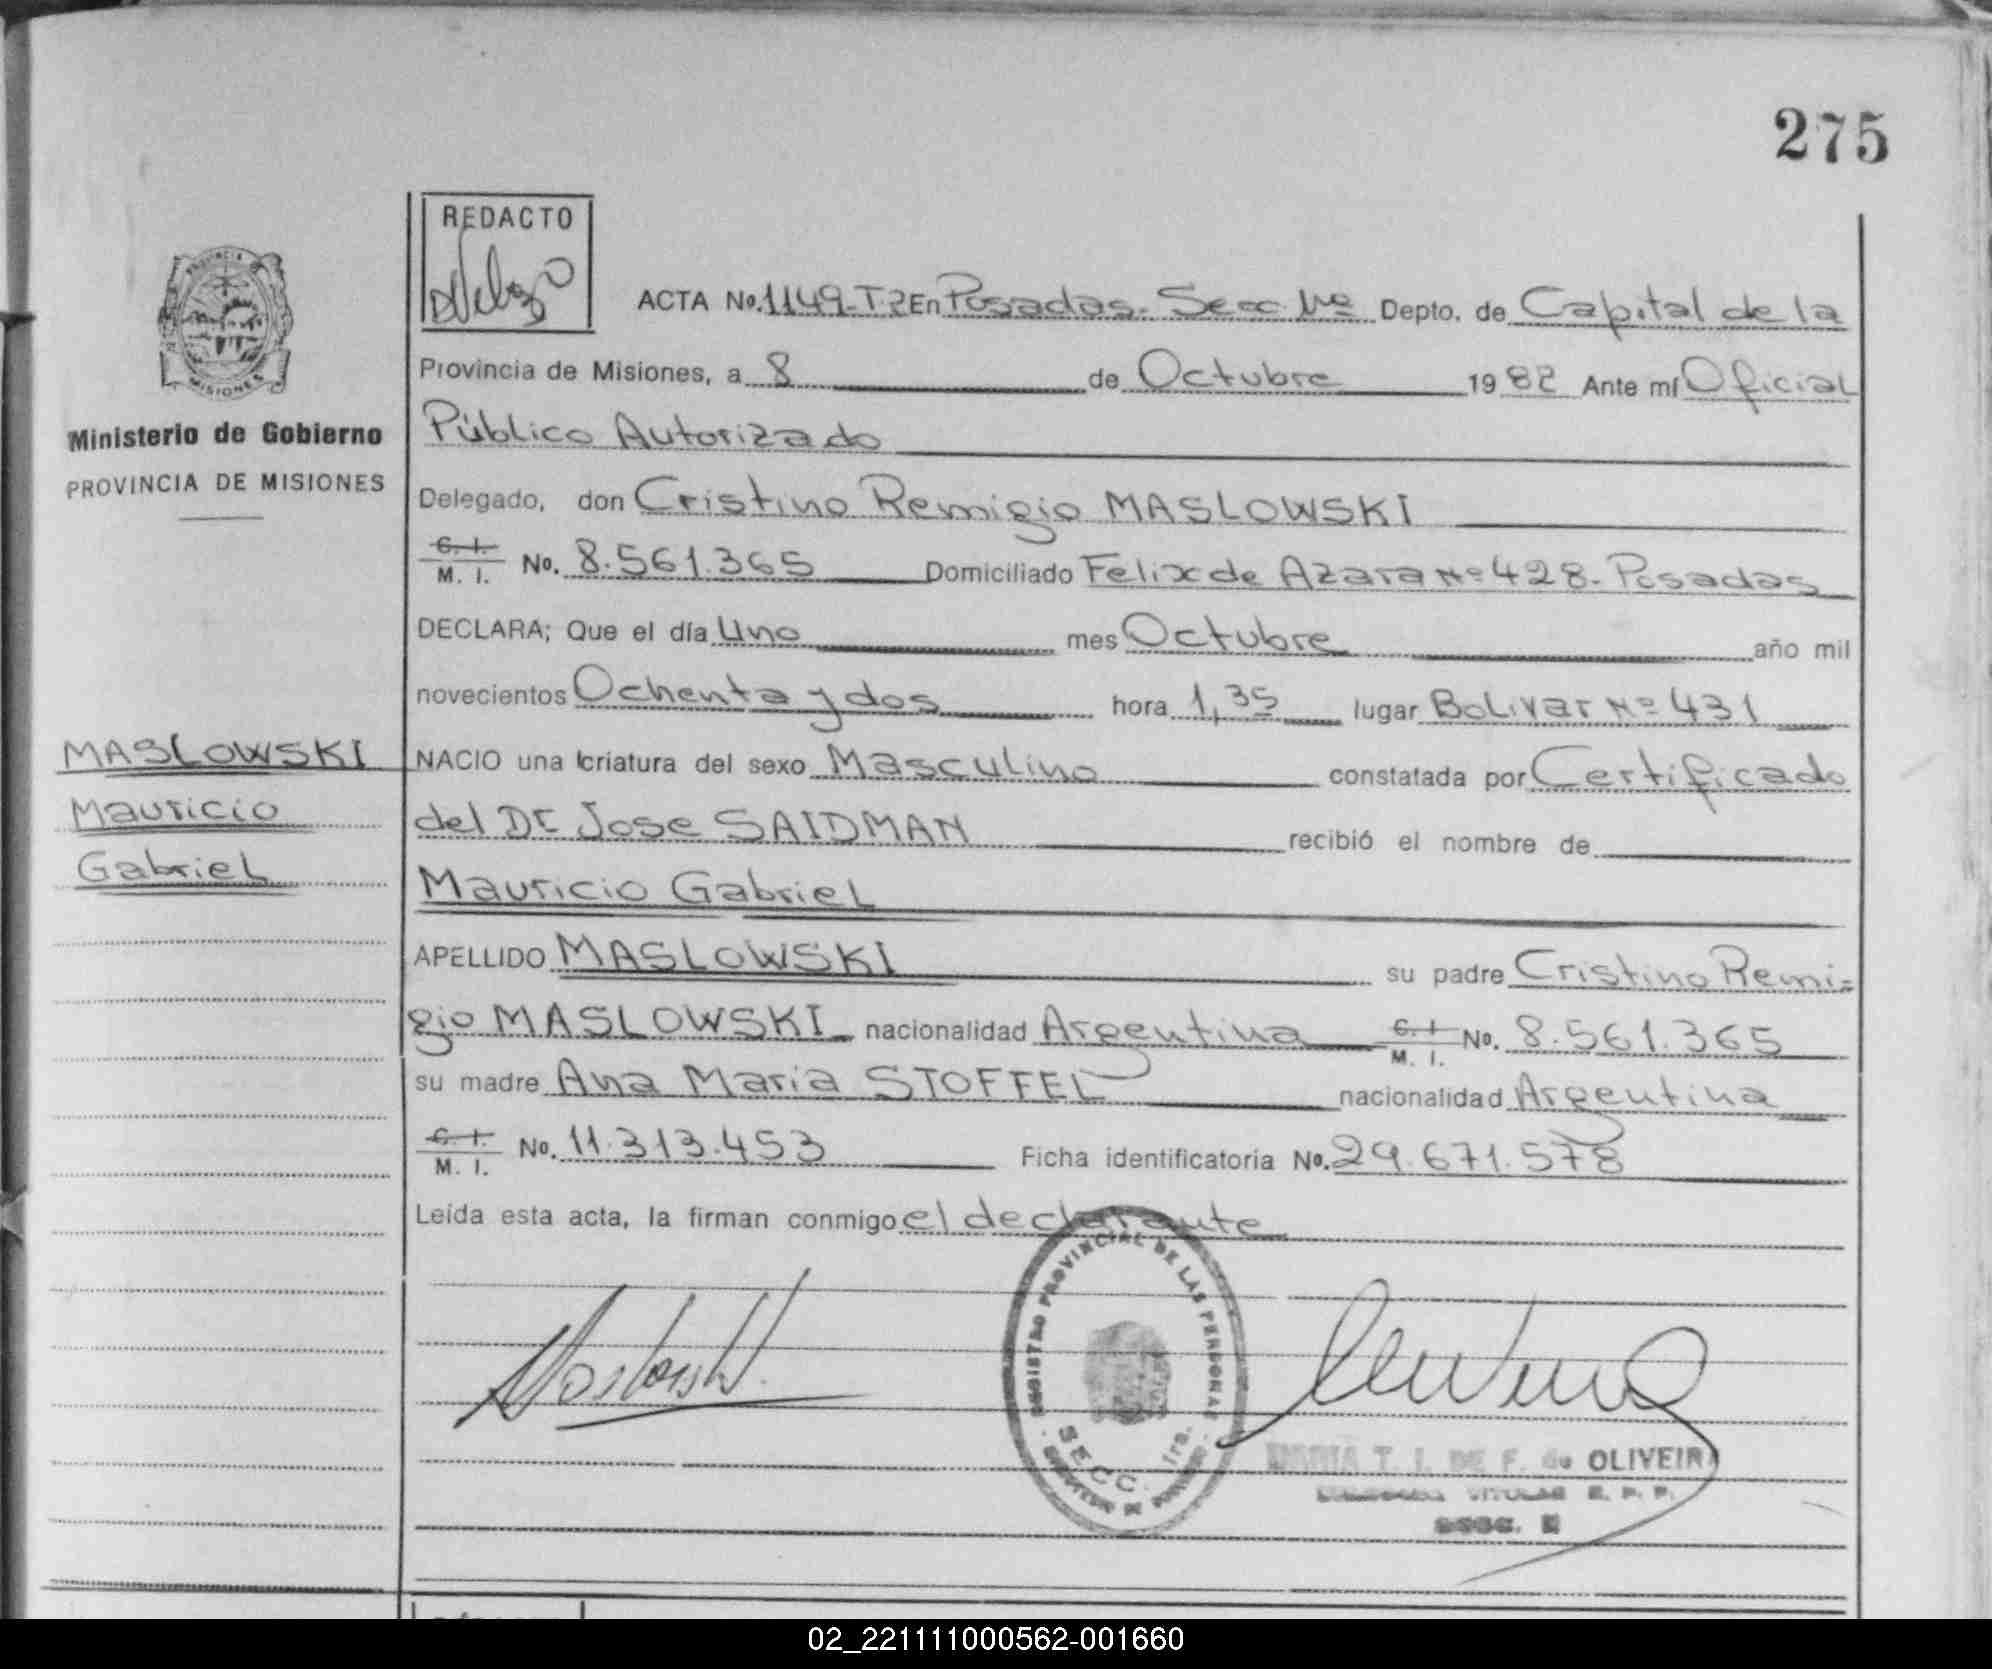 275
REDACTO
ACTA No. 1149-T.2 En Posadas. Secc. 1ra Depto. de Capital de la
Provincia de Misiones, a 8 de Octubre 1982 Ante mí Oficial
Público Autorizado
Delegado, don Cristino Remigio MASLOWSKI
C. I. M. I. No. 8.561.365 Domiciliado Felix de Azara Nº 428. Posadas
DECLARA; Que el día Uno mes Octubre año mil
novecientos Ochenta y dos hora 1,35 lugar Bolivar Nº 431
NACIO una criatura del sexo Masculino constatada por Certificado
del Dr Jose SAIDMAN recibió el nombre de
Mauricio Gabriel
APELLIDO MASLOWSKI su padre Cristino Remi=
gio MASLOWSKI nacionalidad Argentina C. I. M. I. No. 8.561.365
su madre Ana Maria STOFFEL nacionalidad Argentina
C. I. M. I. No. 11.313.453 Ficha identificatoria No. 29.671.578
Leída esta acta, la firman conmigo el declarante
PROVINCIA DE MISIONES
Ministerio de Gobierno
PROVINCIA DE MISIONES
MASLOWSKI
Mauricio
Gabriel
REGISTRO PROVINCIAL DE LAS PERSONAS
SECC. 1ra.
MARIA T. I. DE F. de OLIVEIRA
02_221111000562-001660